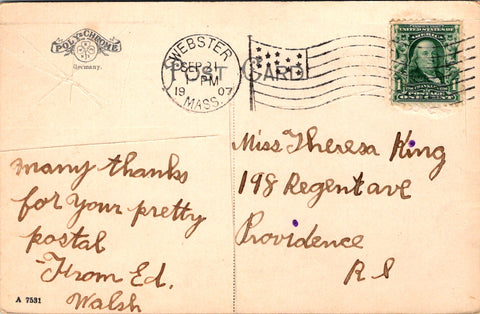 POLYCHROME
Germany.
POST CARD
WEBSTER
PM
1907
MASS.
UNITED STATES OF AMERICA
ONE CENT
Many thanks
for your pretty
postal
-From Ed.
Walsh
Miss Theresa King
198 Regent ave
Providence
R I
A 7531